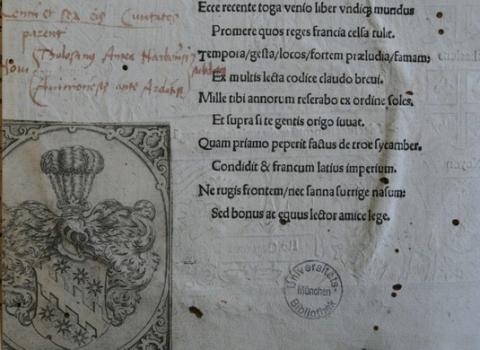 Centũ et sex ... Ciuitates
parent
Ecce recente toga venio liber vndiq; mundus
Promere quos reges francia celsa tulit.
Tempora/gesta/locos/sortem præludia/famam:
Ex multis lecta codice claudo breui.
Mille tibi annorum reserabo ex ordine soles.
Et supra si te gentis origo iuuat.
Quam priamo peperit factus de troe sycamber.
Condidit & francum latius imperium.
Ne rugis frontem/nec sanna surrige nasum:
Sed bonus ac equus lector amice lege.
Universitäts-
Bibliothek
München